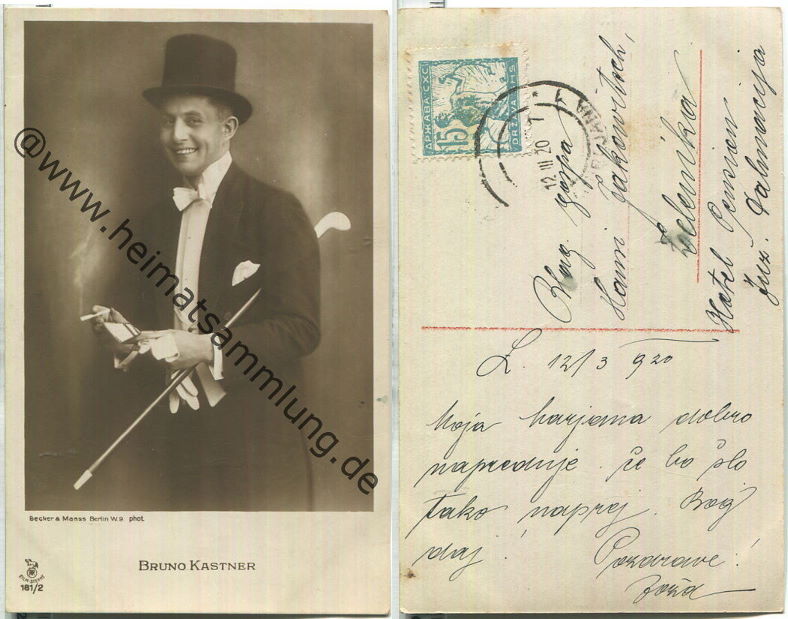 @www.heimatsammlung.de
Becker & Maass Berlin W.9 phot.
BRUNO KASTNER
181/2
ДРЖАВА СХС
15
DRŽAVA SHS
12 III 20
Blag. gospa
Hani Jakowitsch,
Zelenika
Hotel Pension
Juž. Dalmacija
L. 12/3 920
Moja harjana dobro
napreduje. če bo šlo
tako naprej. Bog
daj! Pozdrave!